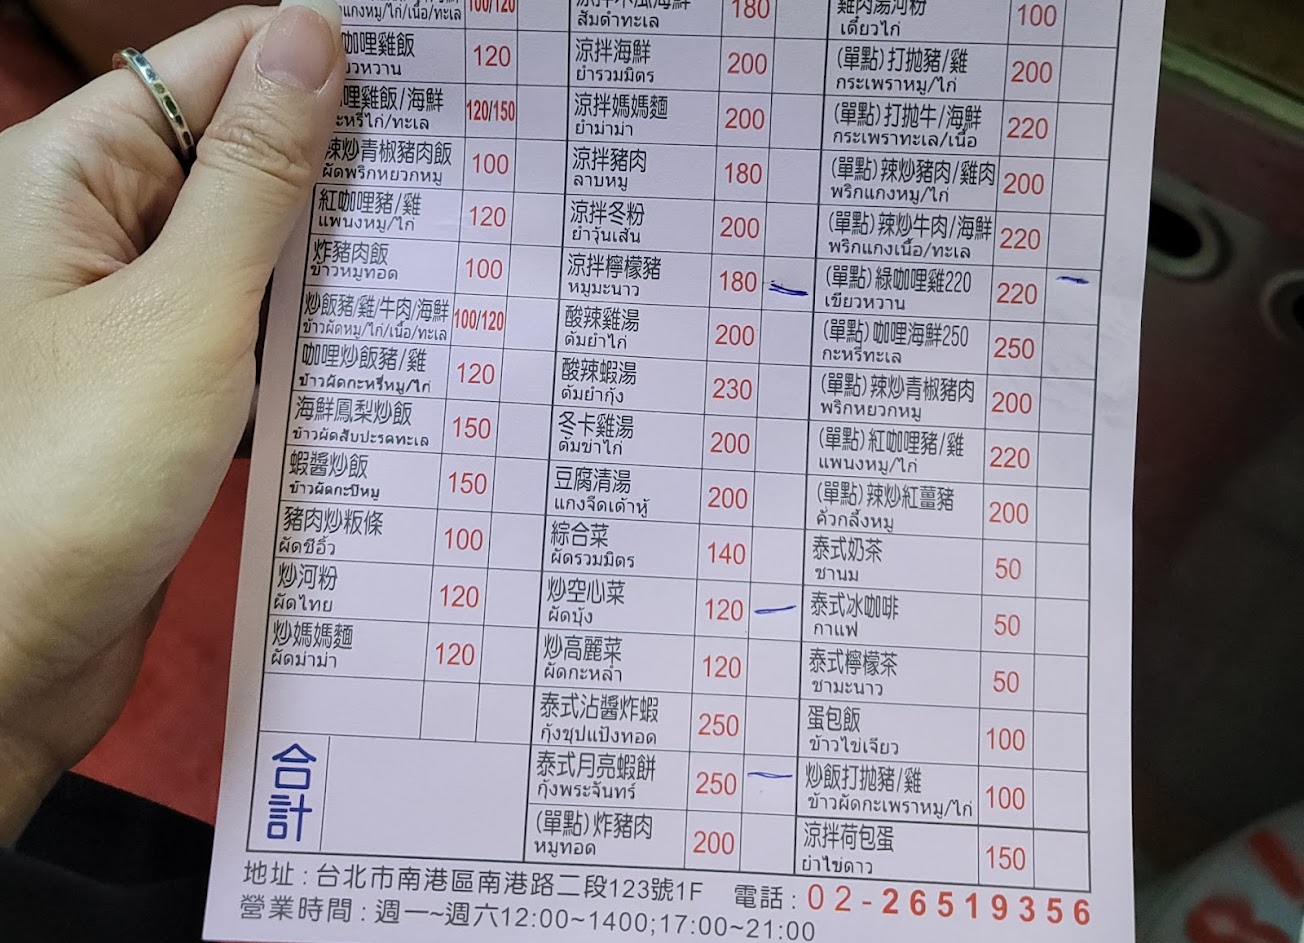 แกงหมู/ไก่/เนื้อ/ทะเล 100/120
咖哩雞飯 120
หวาน
哩雞飯/海鮮 120/150
ะหรี่ไก่/ทะเล
辣炒青椒豬肉飯 100
ผัดพริกหยวกหมู
紅咖哩豬/雞 120
แพนงหมู/ไก่
炸豬肉飯 100
ข้าวหมูทอด
炒飯豬/雞/牛肉/海鮮 100/120
ข้าวผัดหมู/ไก่/เนื้อ/ทะเล
咖哩炒飯豬/雞 120
ข้าวผัดกะหรี่หมู/ไก่
海鮮鳳梨炒飯 150
ข้าวผัดสับปะรดทะเล
蝦醬炒飯 150
ข้าวผัดกะปิหมู
豬肉炒粄條 100
ผัดซีอิ๊ว
炒河粉 120
ผัดไทย
炒媽媽麵 120
ผัดม่าม่า
合計
180
ส้มตำทะเล
涼拌海鮮 200
ยำรวมมิตร
涼拌媽媽麵 200
ยำม่าม่า
涼拌豬肉 180
ลาบหมู
涼拌冬粉 200
ยำวุ้นเส้น
涼拌檸檬豬 180
หมูมะนาว
酸辣雞湯 200
ต้มยำไก่
酸辣蝦湯 230
ต้มยำกุ้ง
冬卡雞湯 200
ต้มข่าไก่
豆腐清湯 200
แกงจืดเต้าหู้
綜合菜 140
ผัดรวมมิตร
炒空心菜 120
ผัดบุ้ง
炒高麗菜 120
ผัดกะหล่ำ
泰式沾醬炸蝦 250
กุ้งชุปแป้งทอด
泰式月亮蝦餅 250
กุ้งพระจันทร์
(單點)炸豬肉 200
หมูทอด
雞肉湯河粉 100
เตี๋ยวไก่
(單點)打拋豬/雞 200
กระเพราหมู/ไก่
(單點)打拋牛/海鮮 220
กระเพราทะเล/เนื้อ
(單點)辣炒豬肉/雞肉 200
พริกแกงหมู/ไก่
(單點)辣炒牛肉/海鮮 220
พริกแกงเนื้อ/ทะเล
(單點)綠咖哩雞220 220
เขียวหวาน
(單點)咖哩海鮮250 250
กะหรี่ทะเล
(單點)辣炒青椒豬肉 200
พริกหยวกหมู
(單點)紅咖哩豬/雞 220
แพนงหมู/ไก่
(單點)辣炒紅薑豬 200
คั่วกลิ้งหมู
泰式奶茶 50
ชานม
泰式冰咖啡 50
กาแฟ
泰式檸檬茶 50
ชามะนาว
蛋包飯 100
ข้าวไข่เจียว
炒飯打拋豬/雞 100
ข้าวผัดกะเพราหมู/ไก่
涼拌荷包蛋 150
ยำไข่ดาว
地址:台北市南港區南港路二段123號1F 電話:02-26519356
營業時間:週一~週六12:00~1400;17:00~21:00